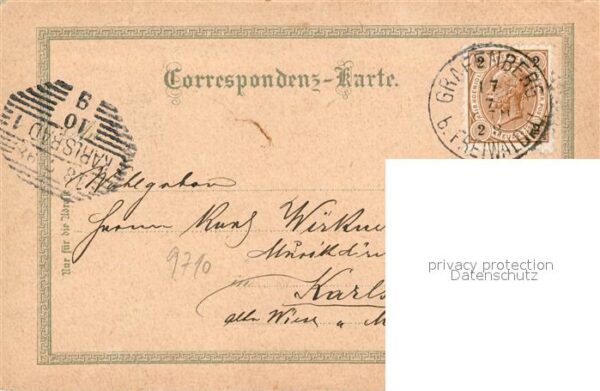 Correspondenz-Karte.
2 2
GRÄFENBERG
17
b. FREIWALDAU
2
KARLSBAD 1
10
9
8
Nur für die Adresse
Wohlgeboren
Herrn Karl
Musikdir
9710
in Karls
Wien
privacy protection
Datenschutz